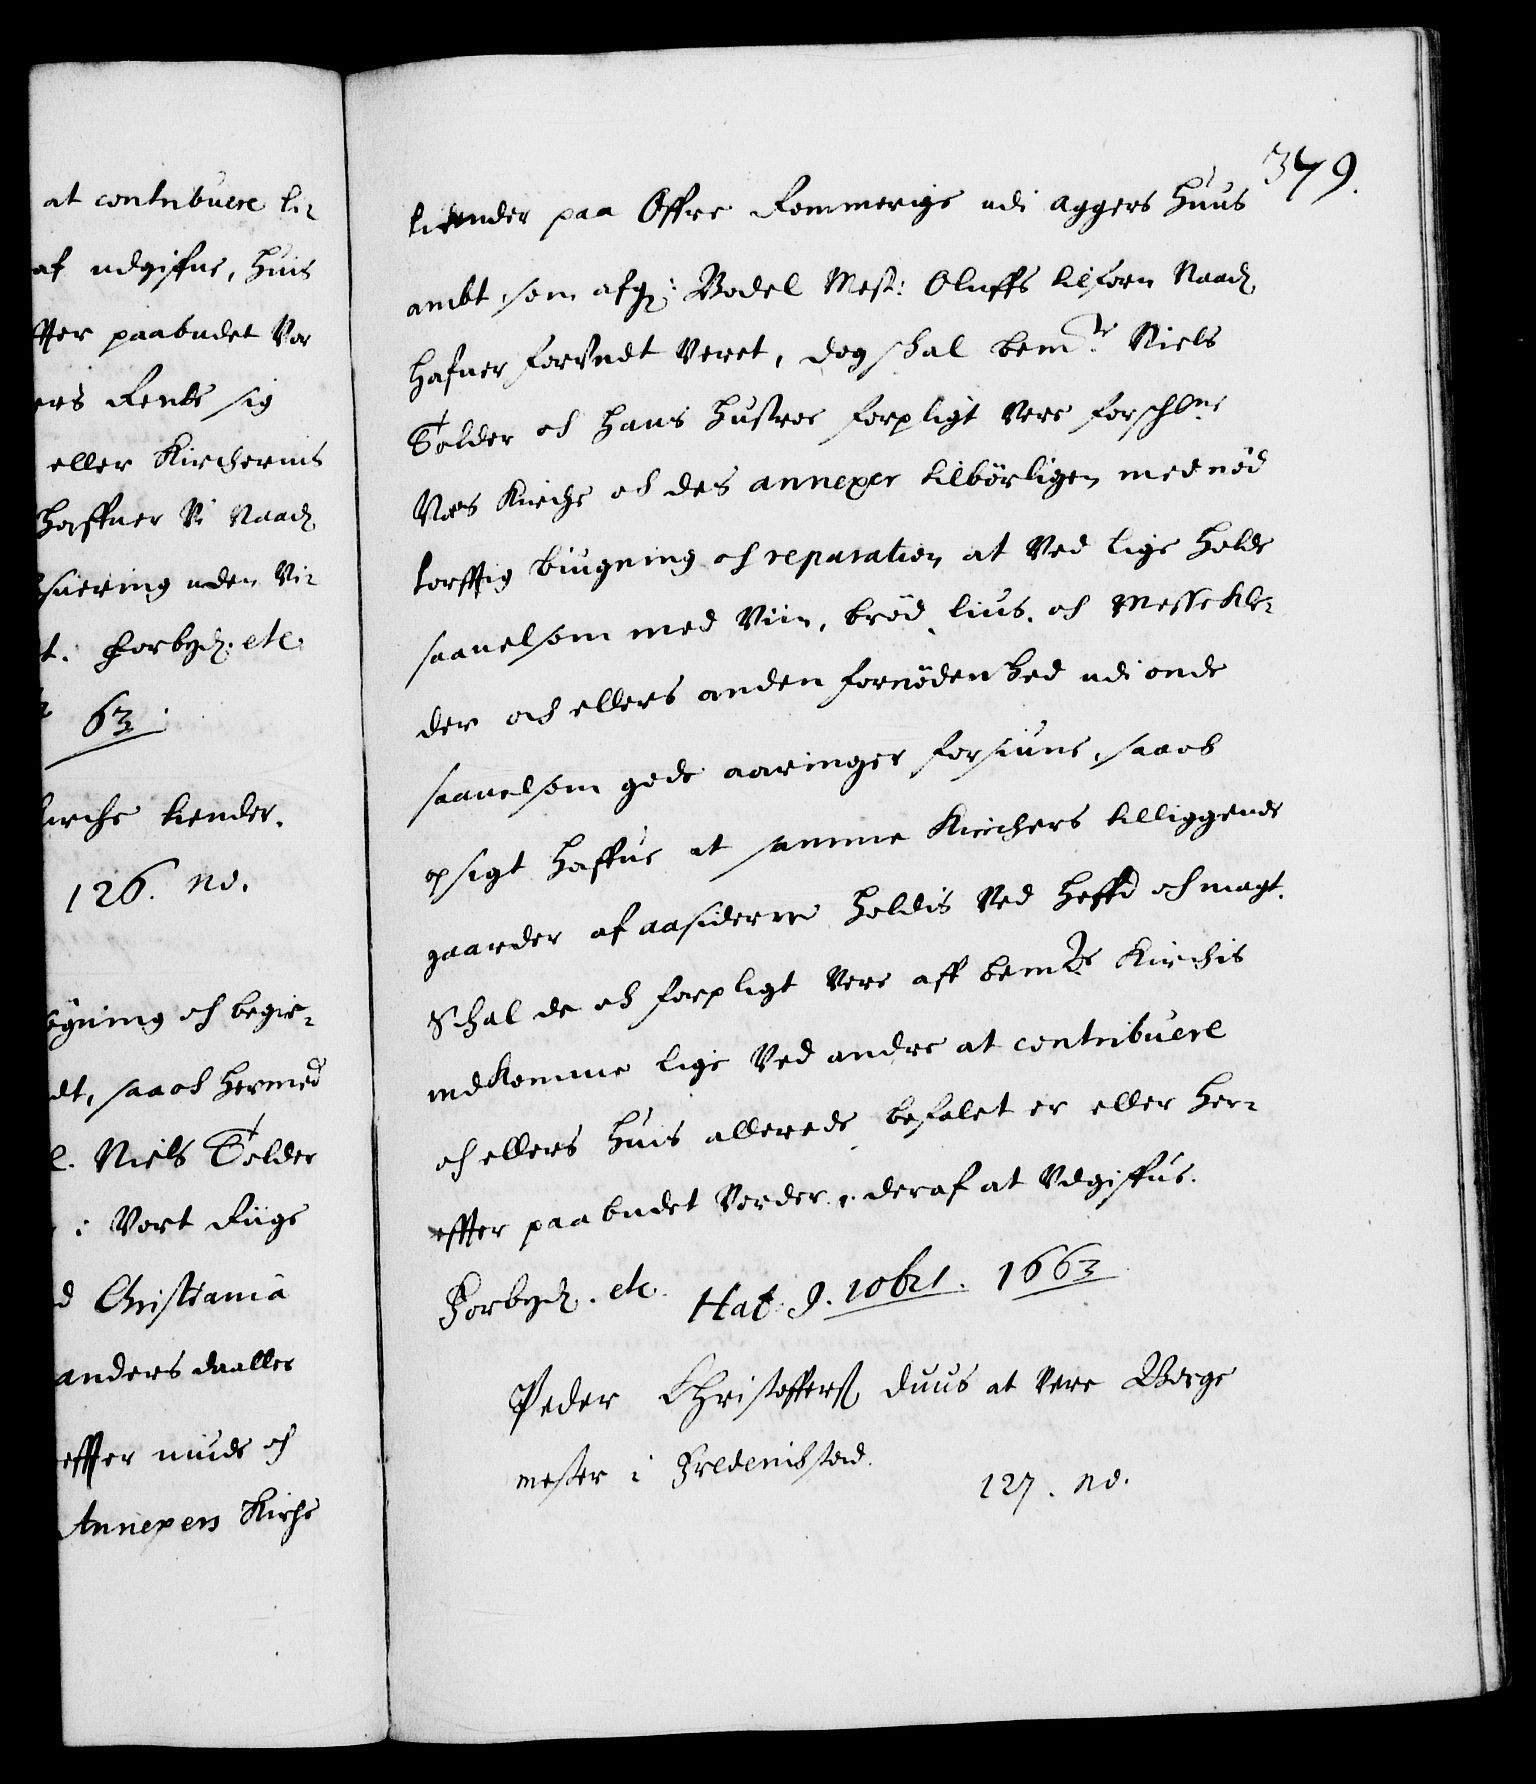 at contribuere ti-
af udgifue, huis
ffter paabudet Vor
ers Rente sig
eller Kirckernis
haffuer Vi Naad.
uering uden Vi-
t. Forbyd. etc
63.
Kirche tiender.
126. No.
bygning och begie-
dt, saa och hermed
l. Niels Tolder
i Vort Riige
d Christiania
anders daaller
effter niude och
Annexen Kirche
379.
tiender paa Offre Rommerige udi Aggers huus
ambt, som afg: Bodel Mest: Oluffs tilforn Naad.
hafuer forundt Veret, dog schal bemte Niels
Tolder och hans hustroe forpligt Vere forschne
Nes Kirche och des annexer tilbörligen med nöd
torfftig biugning och reparation at Ved lige holde
saauelsom med Viin, bröd, lius, och Messekle-
der och ellers anden fornödenhed udi onde
saauelsom gode aaringer forsiune, saa och
opsigt haffue at samme Kirchers tilliggende
gaarder af aasiderne holdis Ved heffd och magt.
Schal de och forpligt Vere aff bemte Kirchis
indkomme lige Ved andre at contribuere
och ellers huis allerede befalet er eller her-
effter paabudet Vorder, deraf at Udgiffue.
Forbyd. etc. Haf. 9. 10br. 1663
Peder Christoffers Duus at Vere Borge
mester i Frederichstad.
127. No.